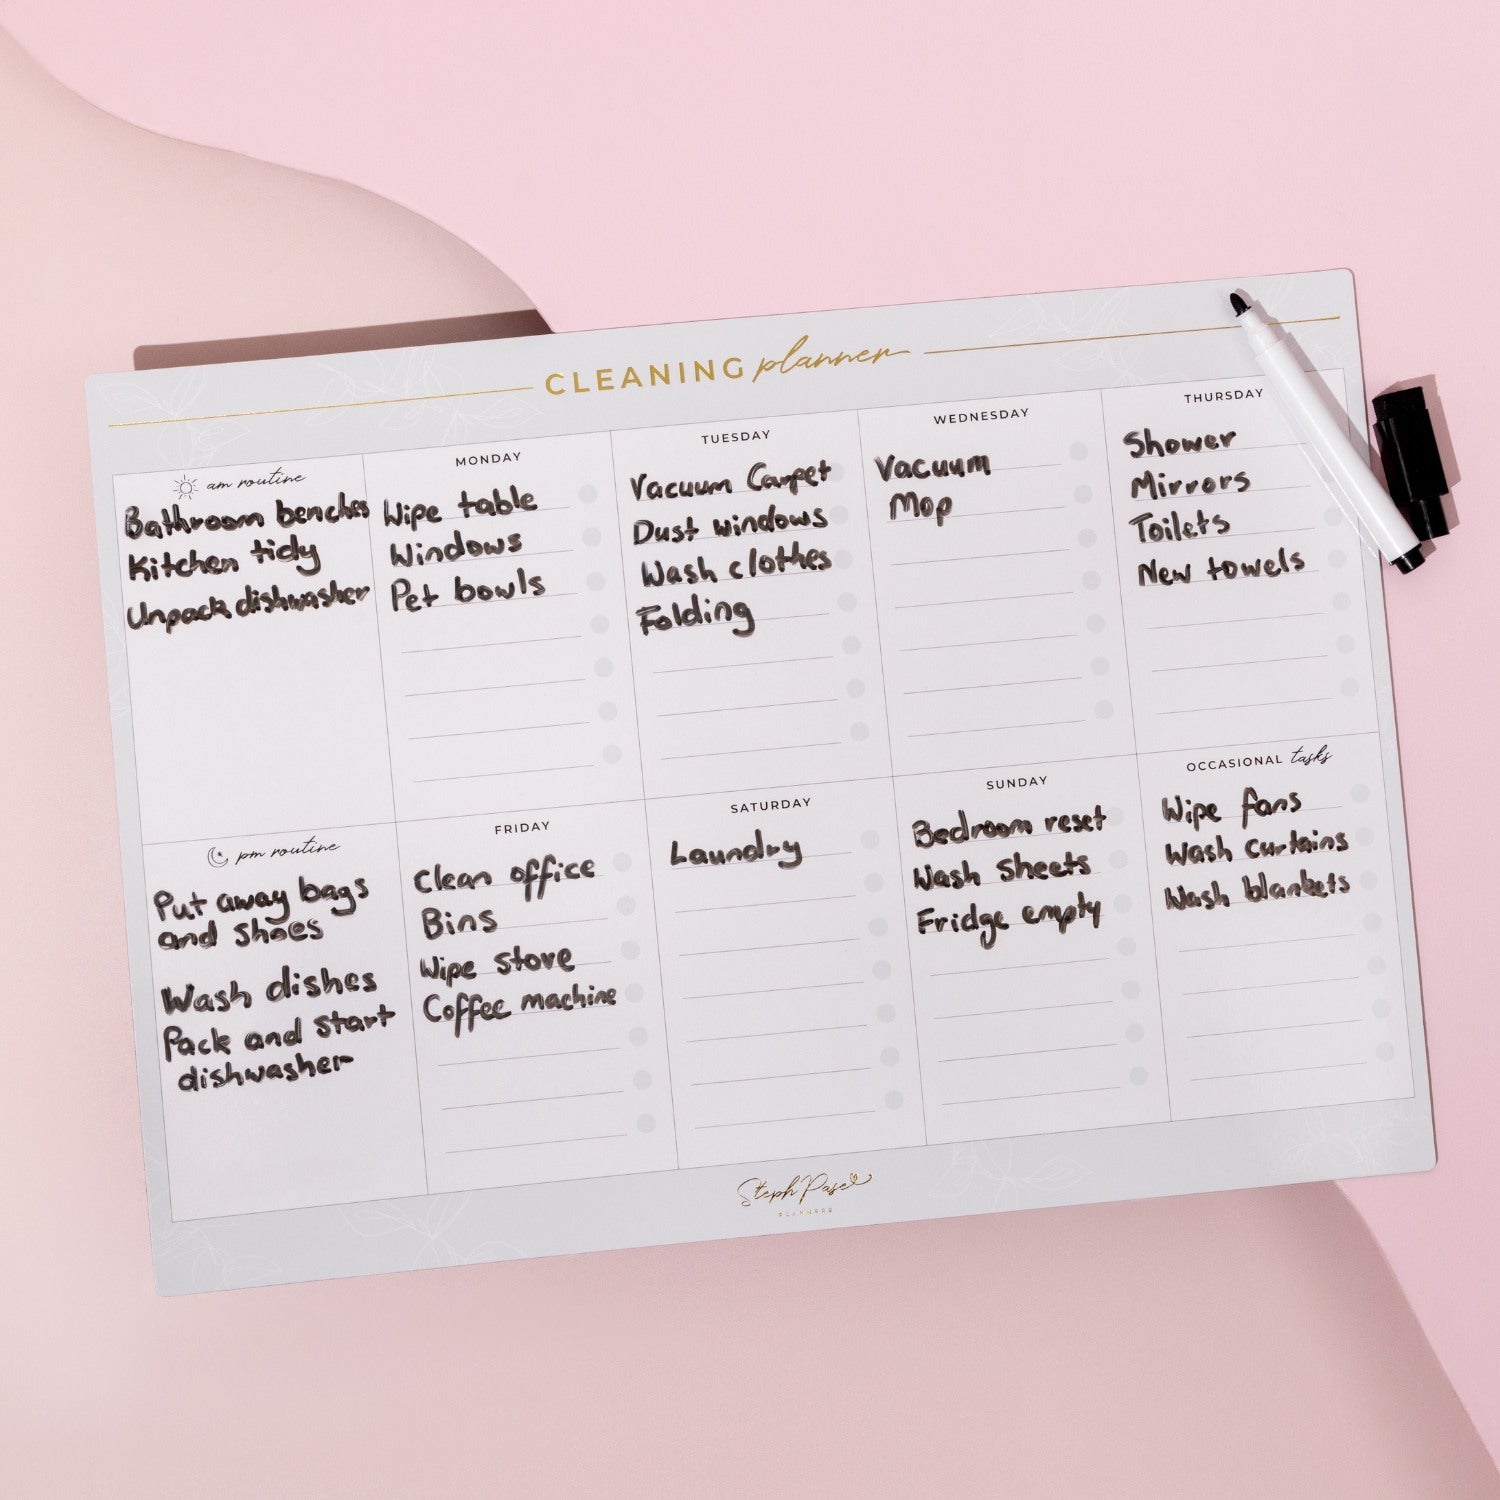 CLEANING planner
am routine
Bathroom benches
Kitchen tidy
Unpack dishwasher
MONDAY
Wipe table
Windows
Pet bowls
TUESDAY
Vacuum Carpet
Dust windows
Wash clothes
Folding
WEDNESDAY
Vacuum
Mop
THURSDAY
Shower
Mirrors
Toilets
New towels
pm routine
Put away bags
and shoes
Wash dishes
Pack and start
dishwasher
FRIDAY
Clean office
Bins
Wipe stove
Coffee machine
SATURDAY
Laundry
SUNDAY
Bedroom reset
Wash sheets
Fridge empty
OCCASIONAL tasks
Wipe fans
Wash curtains
Wash blankets
Steph Pase
PLANNERS